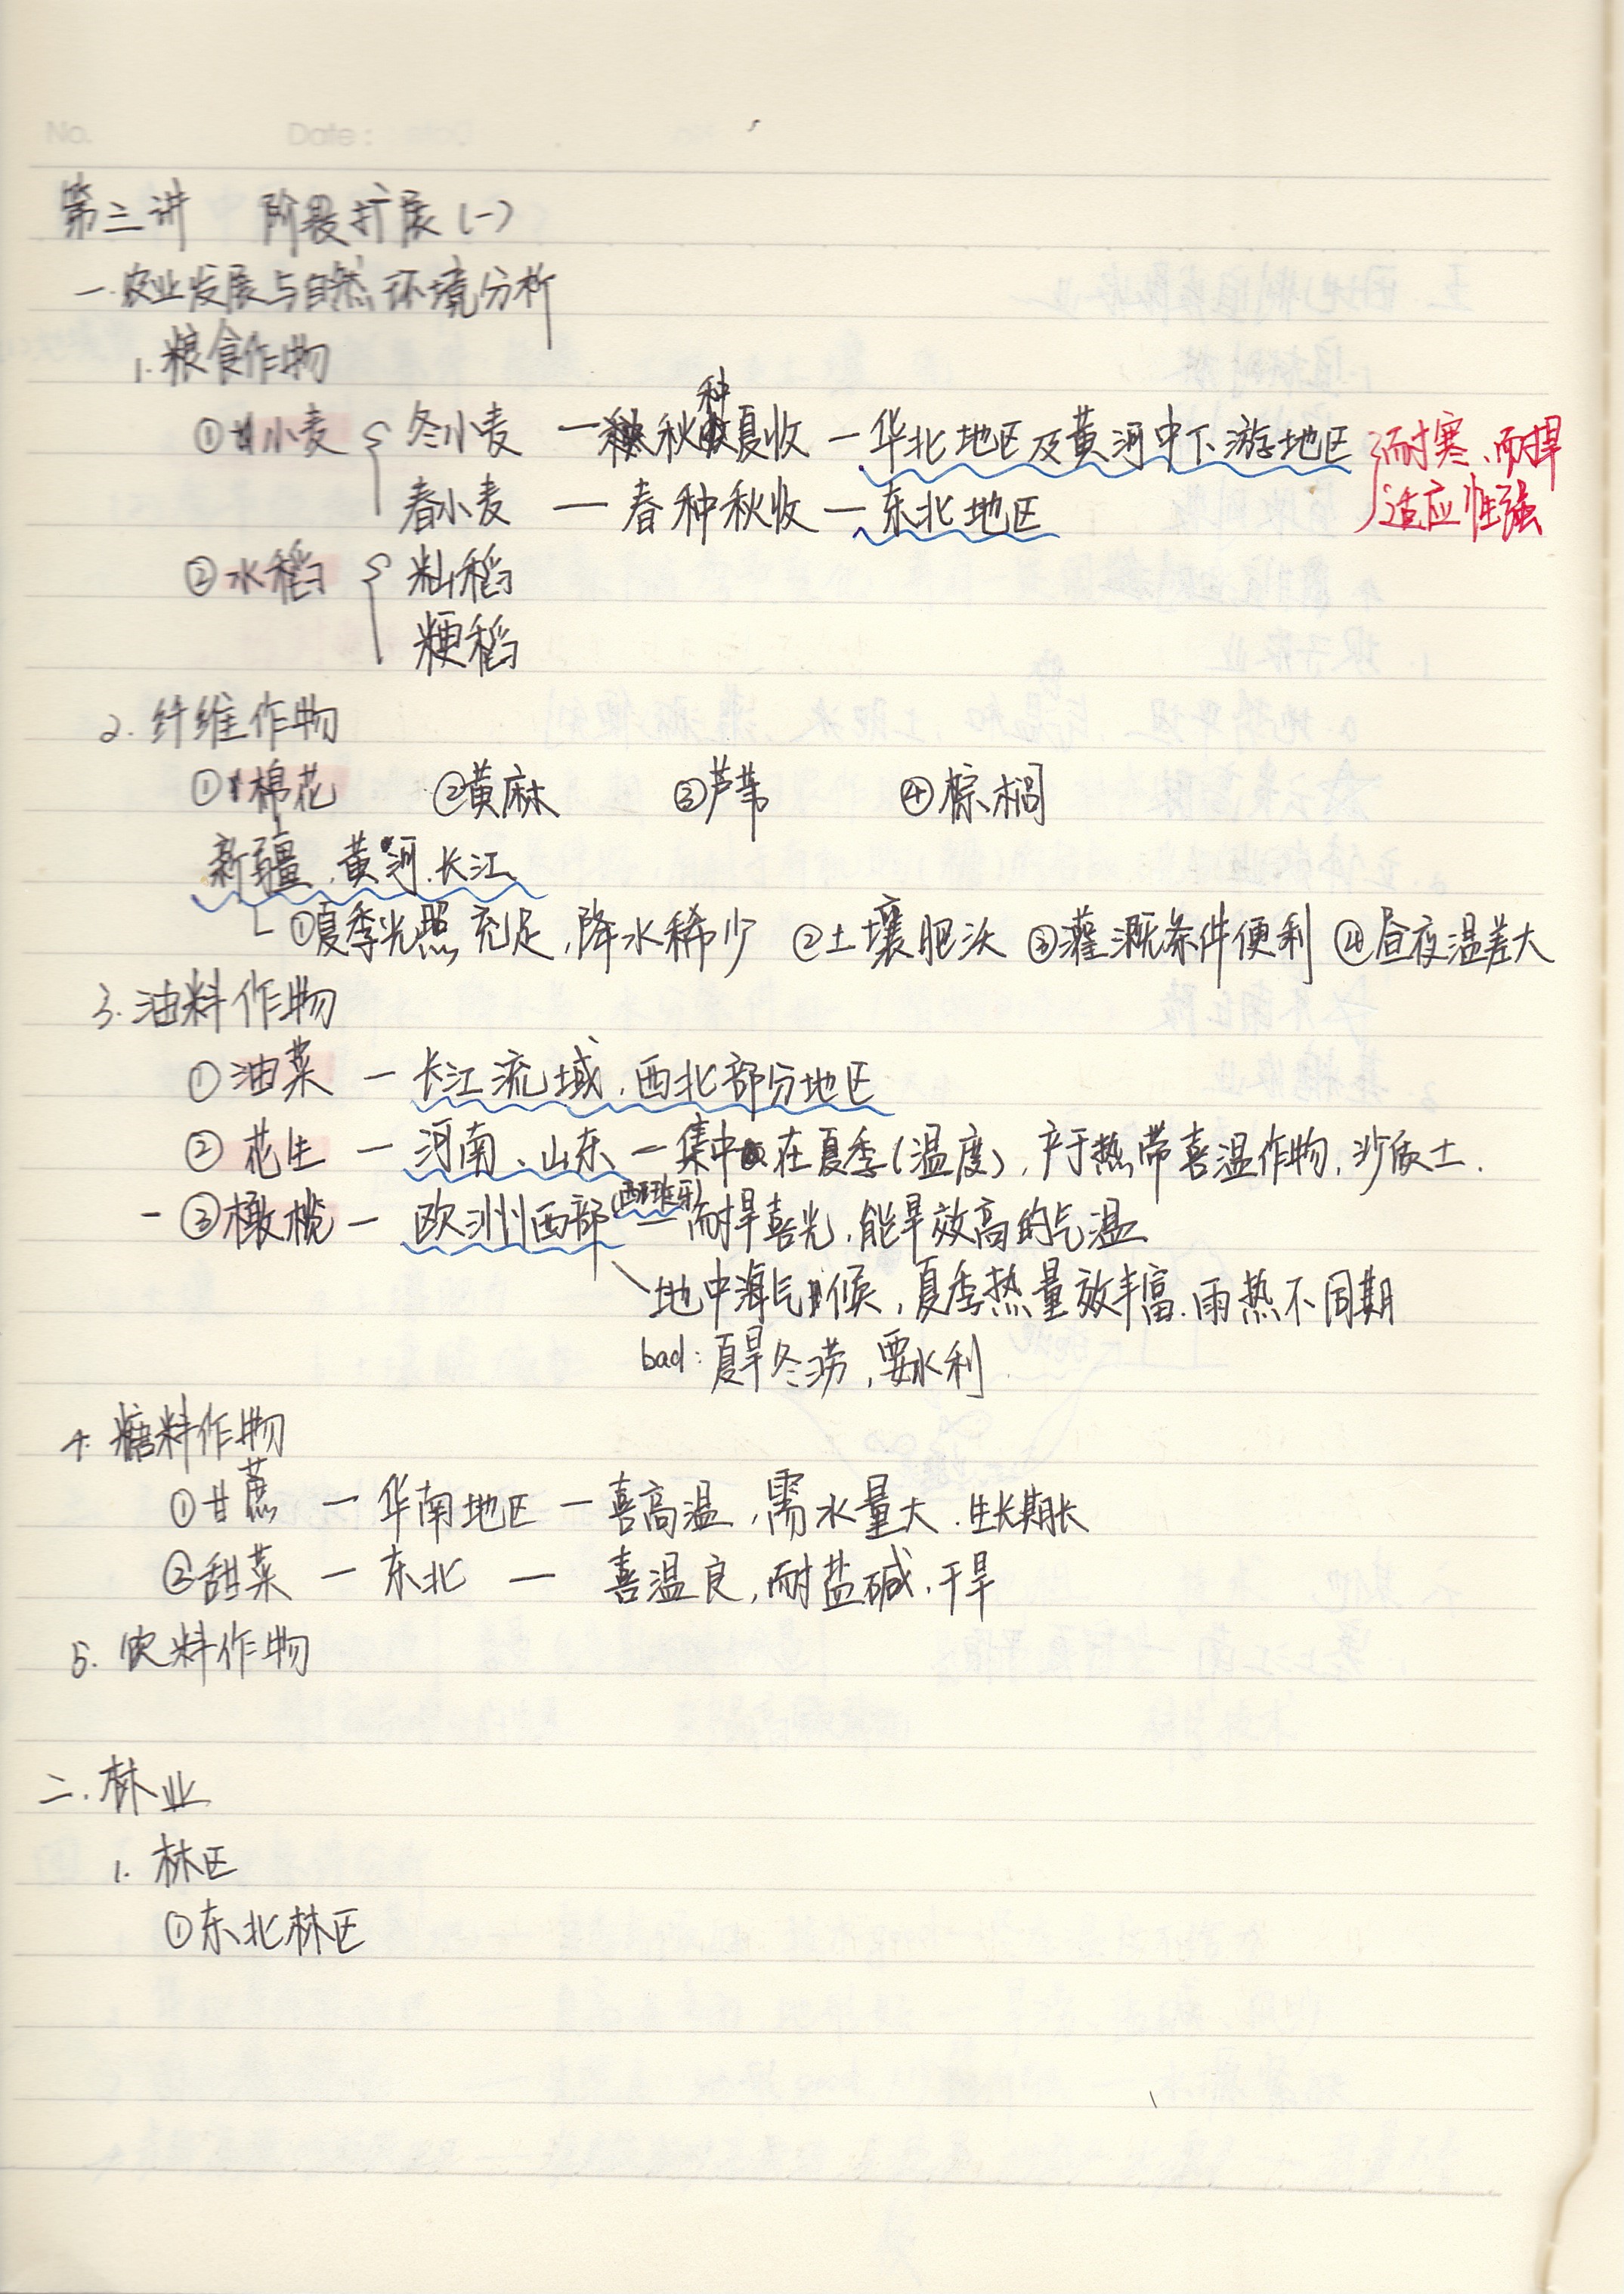 No. Date:
第三讲 阶段扩展(一)
一.农业发展与自然环境分析
1.粮食作物
①小麦 冬小麦 — 秋种夏收 — 华北地区及黄河中下游地区 耐寒、耐旱
春小麦 — 春种秋收 — 东北地区 适应性强
②水稻 籼稻
粳稻
2.纤维作物
①棉花 ②黄麻 ③芦苇 ④棕榈
新疆.黄河.长江
①夏季光照充足,降水稀少 ②土壤肥沃 ③灌溉条件便利 ④昼夜温差大
3.油料作物
①油菜 — 长江流域.西北部分地区
② 花生 — 河南、山东 — 集中在夏季(温度),产于热带喜温作物,沙质土.
- ③橄榄 — 欧洲西部(西班牙) — 耐旱喜光,能早效高的气温
地中海气候,夏季热量效丰富.雨热不同期
bad:夏旱冬涝,要水利
4.糖料作物
①甘蔗 — 华南地区 — 喜高温,需水量大.生长期长
②甜菜 — 东北 — 喜温良,耐盐碱.干旱
5.饮料作物
二.林业
1.林区
①东北林区